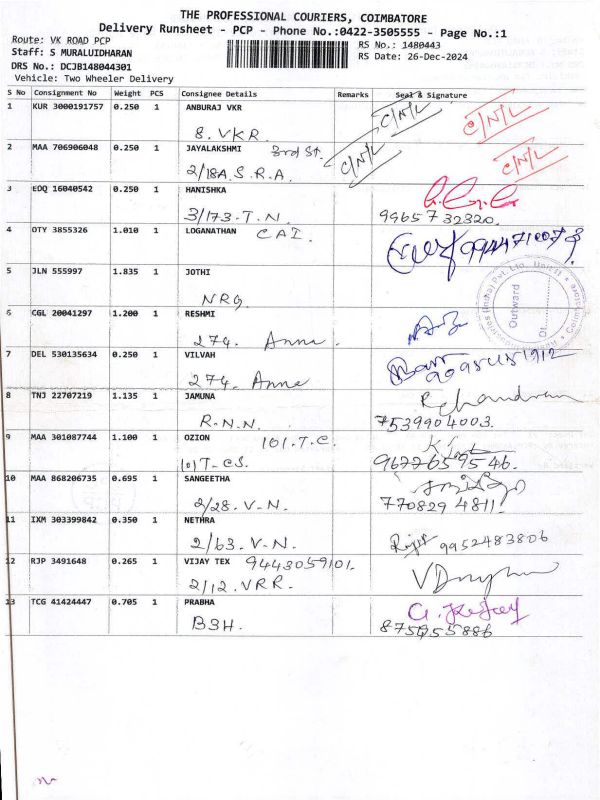 THE PROFESSIONAL COURIERS, COIMBATORE
Delivery Runsheet - PCP - Phone No.:0422-3505555 - Page No.:1
Route: VK ROAD PCP
Staff: S MURALUIDHARAN
RS No.: 1480443
DRS No.: DCJB148044301
RS Date: 26-Dec-2024
Vehicle: Two Wheeler Delivery
S No Consignment No Weight PCS Consignee Details Remarks Seal & Signature
1 KUR 3000191757 0.250 1 ANBURAJ VKR C/N/L C/N/L
8. VKR.
2 MAA 706906048 0.250 1 JAYALAKSHMI 3rd St. C/N/L C/N/L
2/18A. S.R.A.
3 EDQ 16040542 0.250 1 HANISHKA
3/173. T.N. 9965732320.
4 OTY 3855326 1.010 1 LOGANATHAN CAI.
5 JLN 555997 1.835 1 JOTHI
NRG. Outward
6 CGL 20041297 1.200 1 RESHMI
274. Anna.
7 DEL 530135634 0.250 1 VILVAH
274. Anna
8 TNJ 22707219 1.135 1 JAMUNA R Chandran
R.N.N. 7539904003.
9 MAA 301087744 1.100 1 OZION 101.T.C.
101 T-CS. 9677659546.
10 MAA 868206735 0.695 1 SANGEETHA
2/28. V-N. 770829 4811.
11 IXM 303399842 0.350 1 NETHRA
2/63. V-N. 9952483806
12 RJP 3491648 0.265 1 VIJAY TEX 9443059101.
2/12. VRR.
13 TCG 41424447 0.705 1 PRABHA
B3H.